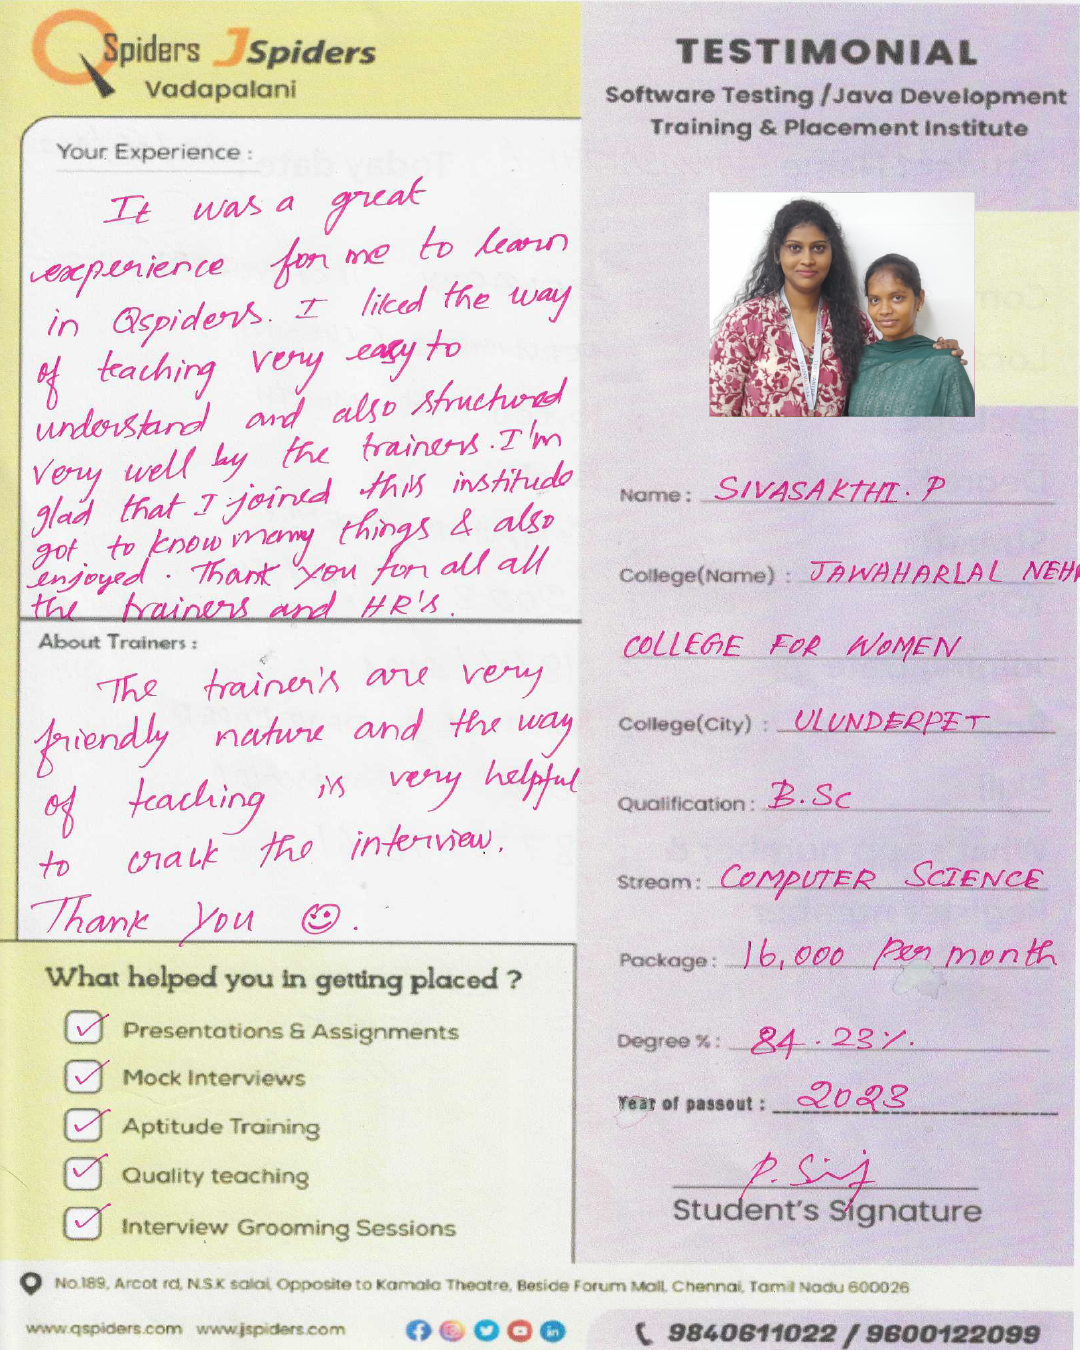 QSpiders JSpiders
Vadapalani
Your Experience :
It was a great
experience for me to learn
in Qspiders. I liked the way
of teaching very easy to
understand and also structured
very well by the trainers. I'm
glad that I joined this institude
got to know many things & also
enjoyed. Thank you for all all
the trainers and HR's.
About Trainers :
The trainer's are very
friendly nature and the way
of teaching is very helpful
to crack the interview.
Thank You
What helped you in getting placed ?
Presentations & Assignments
Mock Interviews
Aptitude Training
Quality teaching
Interview Grooming Sessions
TESTIMONIAL
Software Testing /Java Development
Training & Placement Institute
Name : SIVASAKTHI. P
College(Name) : JAWAHARLAL NEH
COLLEGE FOR WOMEN
College(City) : ULUNDERPET
Qualification : B.Sc
Stream : COMPUTER SCIENCE
Package : 16,000 Per month
Degree % : 84.23%.
Year of passout : 2023
Student's Signature
No.189, Arcot rd, N.S.K salai, Opposite to Kamala Theatre, Beside Forum Mall, Chennai, Tamil Nadu 600026
www.qspiders.com www.jspiders.com
9840611022 / 9600122099